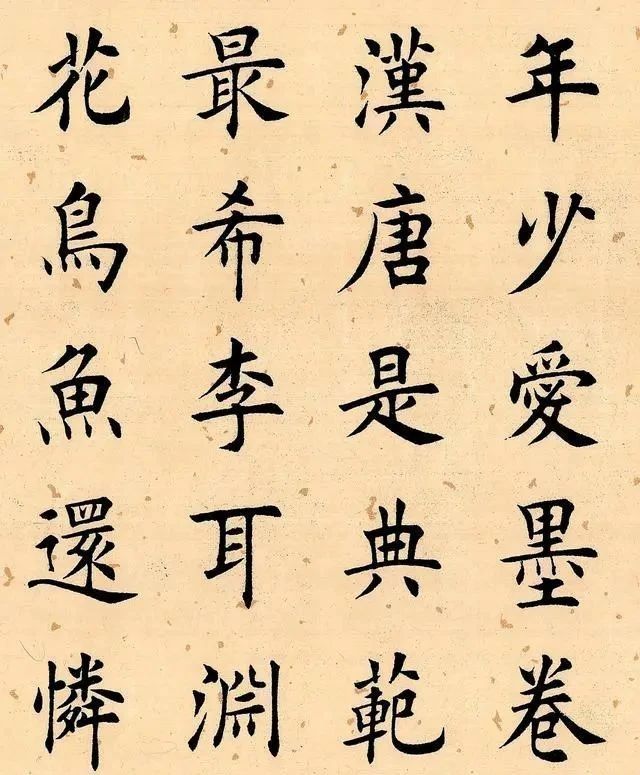 年少愛墨卷
漢唐是典範
最希李耳淵
花鳥魚還憐